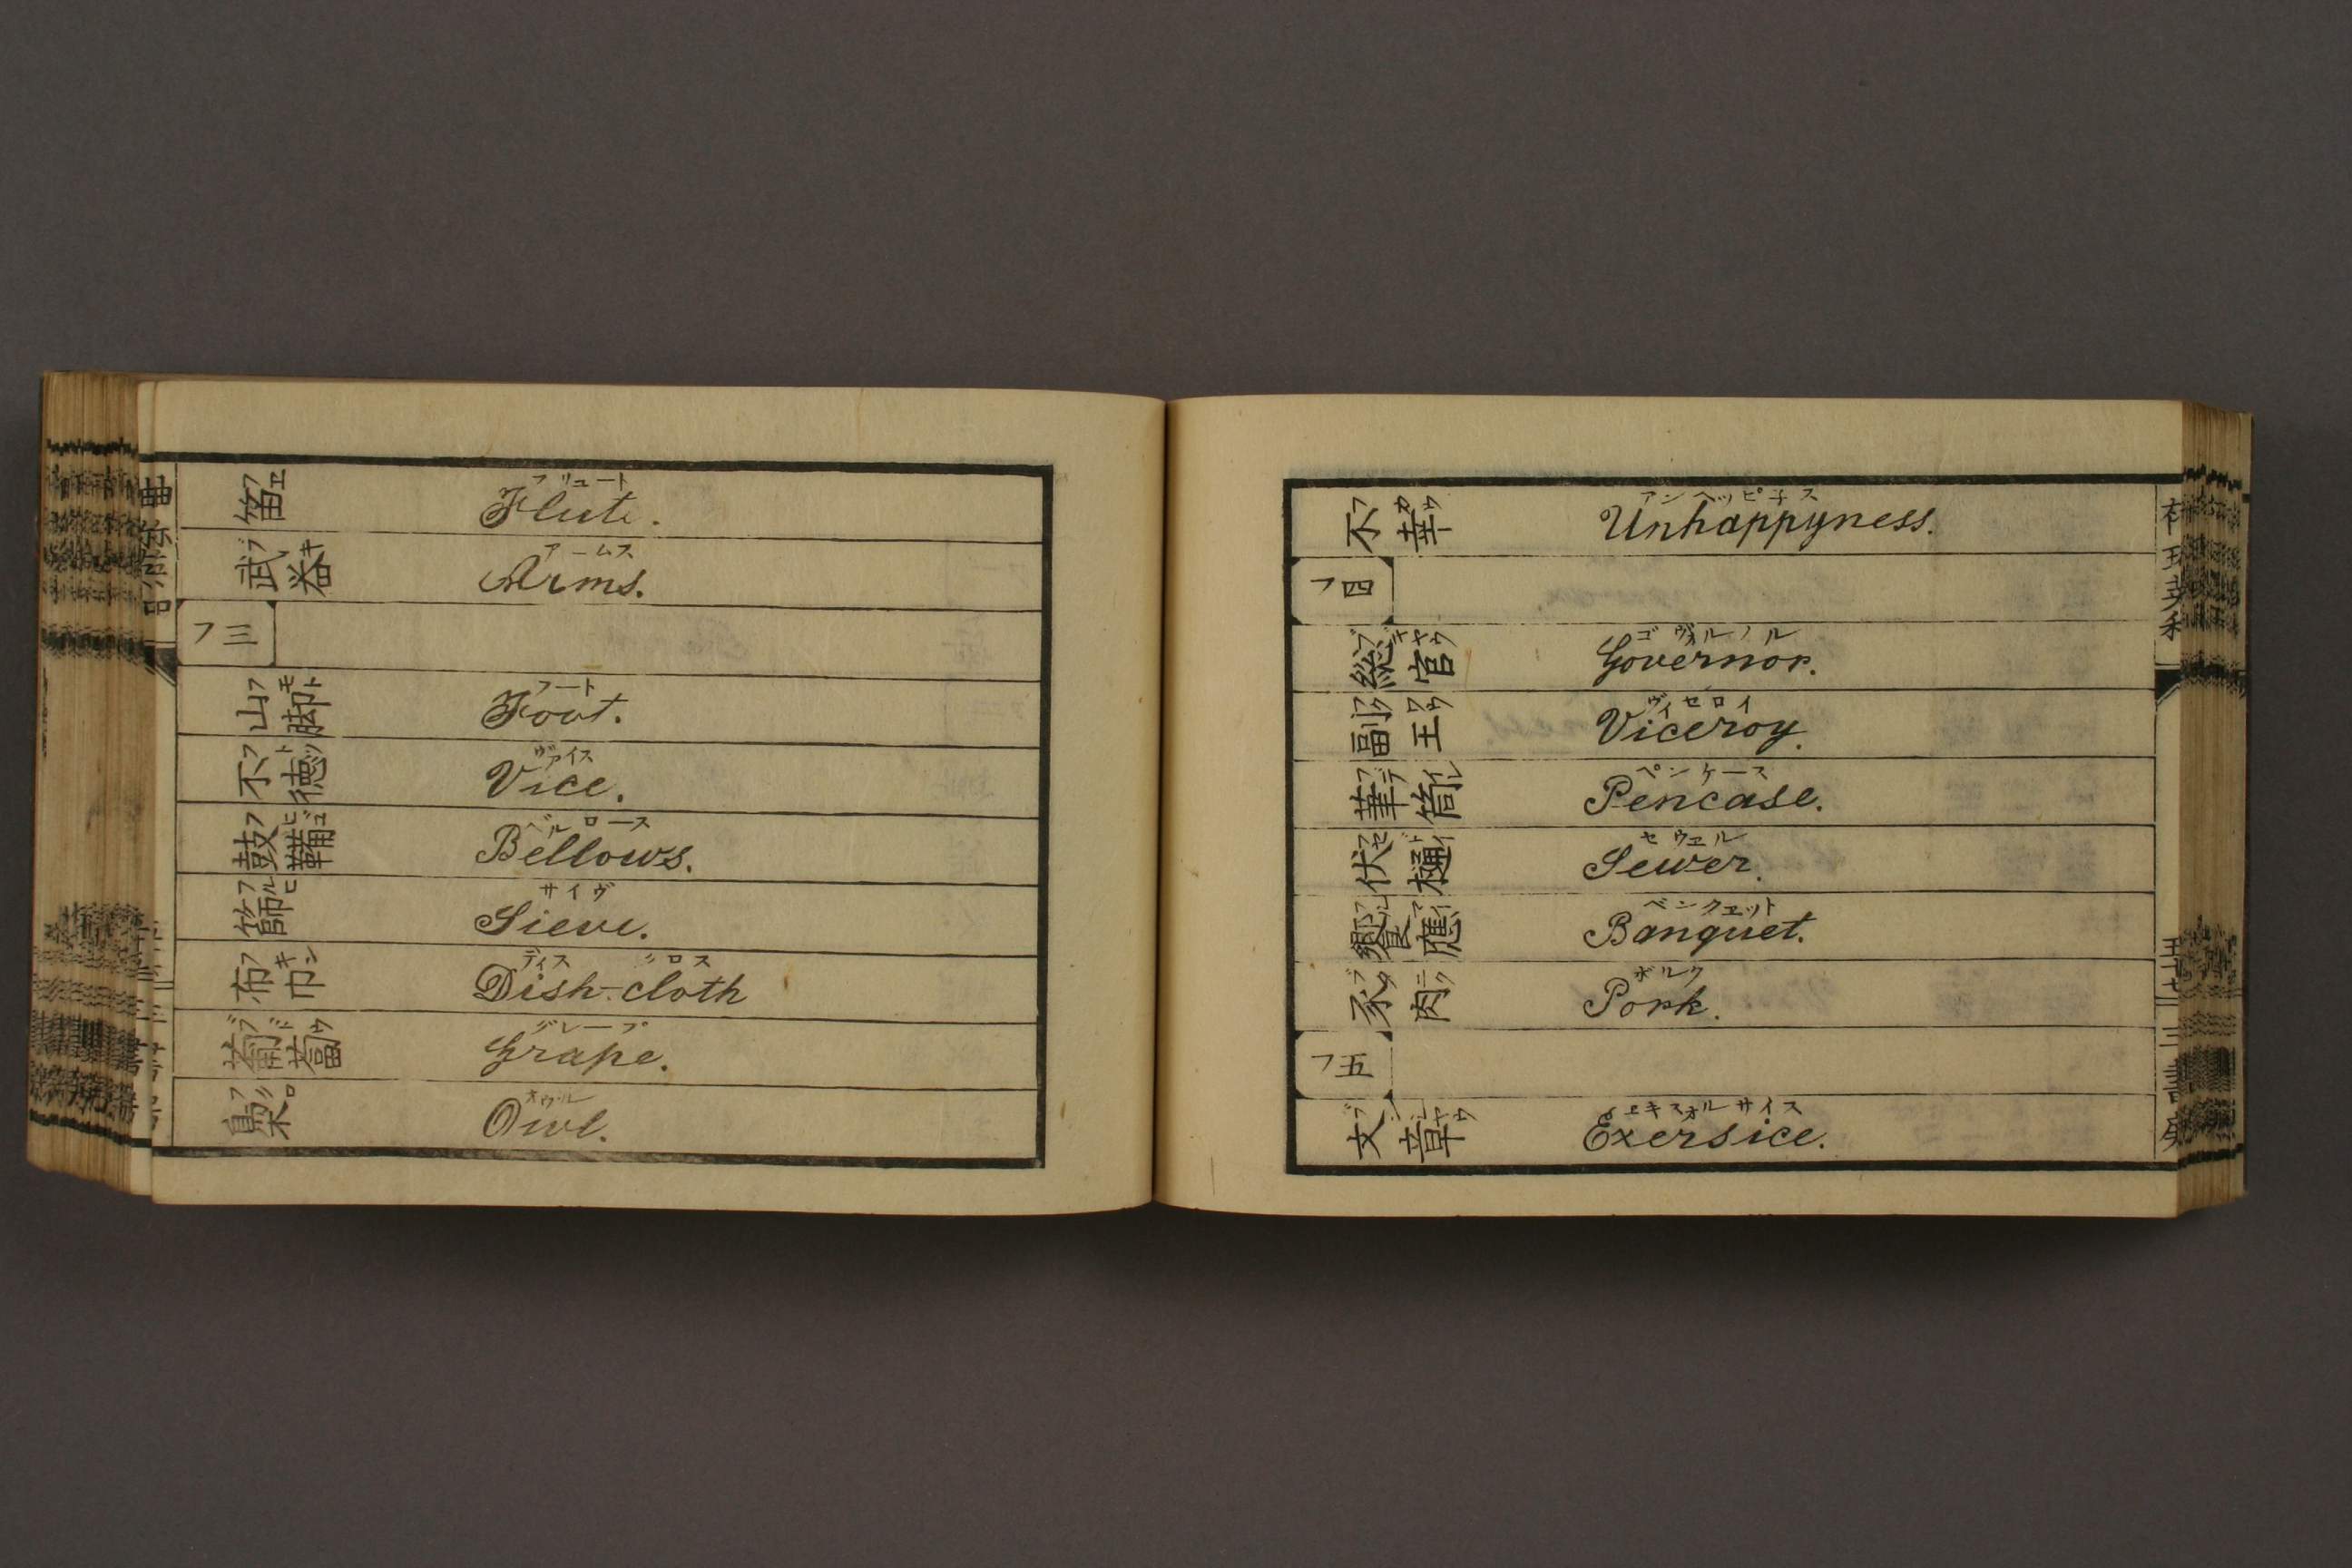 笛 フエ
フリュート
Flute.
武器 ブキ
アームス
Arms.
フ三
山脚 フモト
フート
Foot.
不徳 フトク
ヴァイス
Vice.
鼓鞴
ベルロース
Bellows.
篩 フルヒ
サイヴ
Sieve.
布巾 フキン
ディス ロス
Dish-cloth
葡萄 ブドウ
グレープ
Grape.
梟
オウル
Owl.
不幸
アンヘッピ子ス
Unhappyness.
フ四
總官
ゴヴォルノル
Governor.
副王
ヴイセロイ
Viceroy.
筆筒 フデイレ
ペンケース
Pencase.
伏樋 フセドイ
セウエル
Sewer.
饗應
ベンクエット
Banquet.
豕肉
ポルク
Pork.
フ五
文章
エキスオルサイス
Exersice.